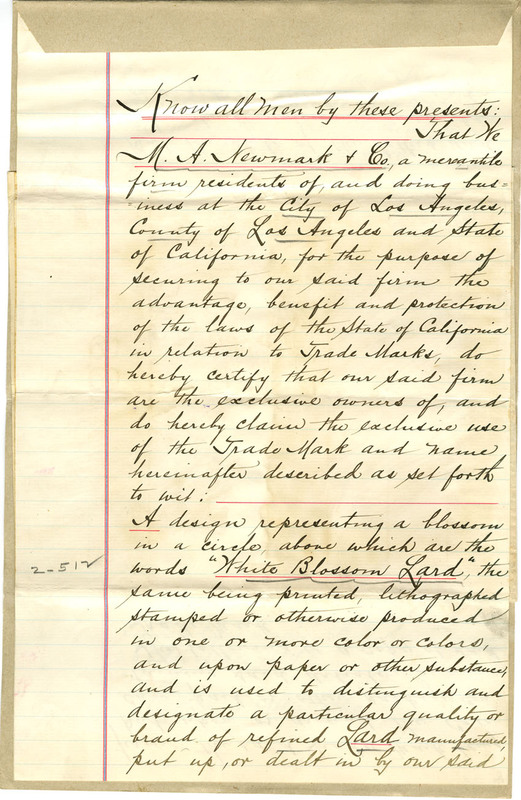 Know all men by these presents:
That We
M. A. Newmark & Co., a mercantile
firm residents of, and doing bus=
=iness at the City of Los Angeles,
County of Los Angeles and State
of California, for the purpose of
securing to our said firm the
advantage, benefit and protection
of the laws of the State of California
in relation to Trade Marks, do
hereby certify that our said firm
are the exclusive owners of, and
do hereby claim the exclusive use
of the Trade Mark and name
hereinafter described as set forth
to wit:
A design representing a blossom
in a circle, above which are the
2-512
words "White Blossom Lard", the
same being printed, lithographed
stamped or otherwise produced
in one or more color or colors,
and upon paper or other substance,
and is used to distinguish and
designate a particular quality or
brand of refined Lard manufactured,
put up, or dealt in by our said